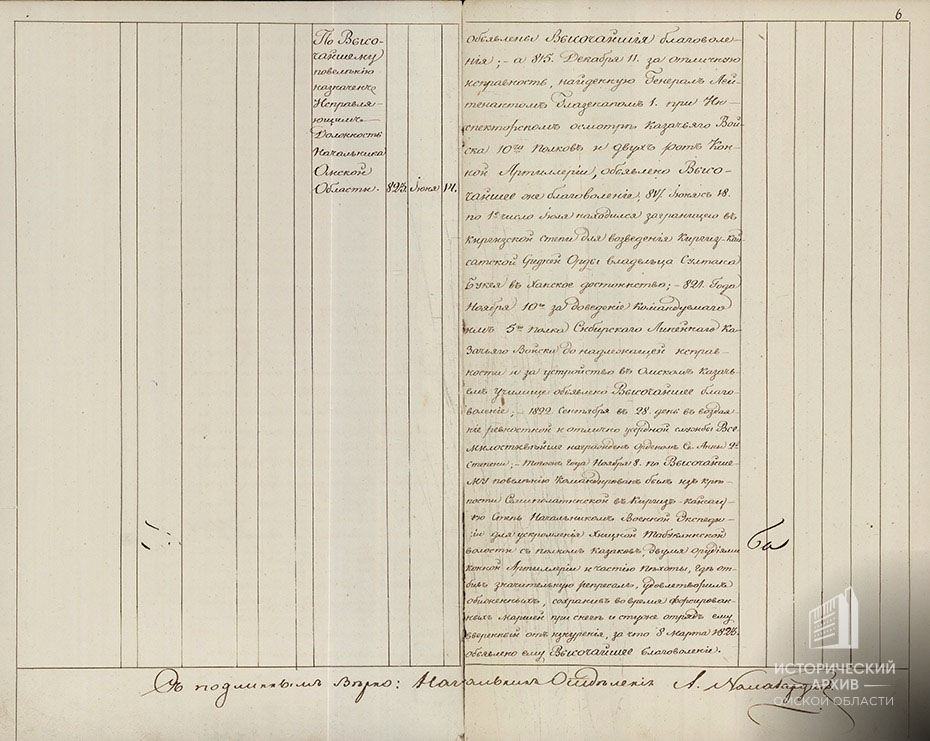 6
По Высо-
чайшему
повелѣнію
назначенъ
Исправля-
ющимъ
Должность
Начальника
Омской
Области. 823. Іюня 14.
объявлены Высочайшія благоволе-
нія; – а 815. Декабря 11. за отличною
исправность, найденную Генералъ Лей-
тенантомъ Глазенапомъ 1. при Ин-
спекторскомъ осмотрѣ Казачьяго Вой-
ска 10ти Полковъ и двухъ ротъ Кон-
ной Артиллеріи, объявлено Высо-
чайшее оне благоволеніе, 817. Іюня съ 18.
по 1е число Іюля находился заграницею въ
Киргизской степи для возведенія Киргиз-Кай-
сатской Средней Орды владельца Султана
Букея въ Ханское достоинство; – 821. Года
Ноября 10го за доведеніе Командуемаго
имъ 5го Полка Сибирскаго Линейнаго Ка-
зачьяго Войска до надлежащей исправ-
ности и за устройство въ Омскомъ Казачь-
емъ Училище объявлено Высочайшее благо-
воленіе; – 1822 Сентября въ 28. день въ воздая-
ніе ревностной и отлично усердной службы Все-
милостивѣйше награжденъ Орденомъ Св. Анны 2й
Степени; – тогожъ года Ноября 8. по Высочайше-
му повелѣнію Командированъ былъ изъ крѣ-
пости Семиполатинской въ Киргиз-Кайсац-
ю Степь Начальникомъ Военной Экспеди-
ціи для усмиренія Табуклинской
волости съ полкомъ Казаковъ, двумя орудіями
Конной Артиллеріи и частію Пѣхоты, гдѣ от-
бивъ значительную репресаль, удовлетворилъ
обиженныхъ, сохранивъ во время форсирован-
ныхъ маршей при снеге и стуже отрядъ ему
вверенной отъ изнуренія, за что 8 Марта 1823.
объявлено ему Высочайшее благоволеніе.
6а
Съ подлиннымъ Вѣрно: Начальникъ Отдѣленія А.
ИСТОРИЧЕСКИЙ
АРХИВ
ОМСКОЙ ОБЛАСТИ